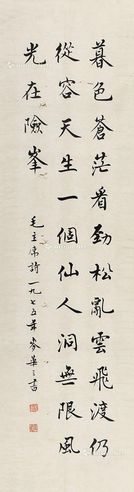 暮色蒼茫看勁松亂雲飛渡仍
從容天生一個仙人洞無限風
光在險峯
毛主席詩一九七五年麥華三書